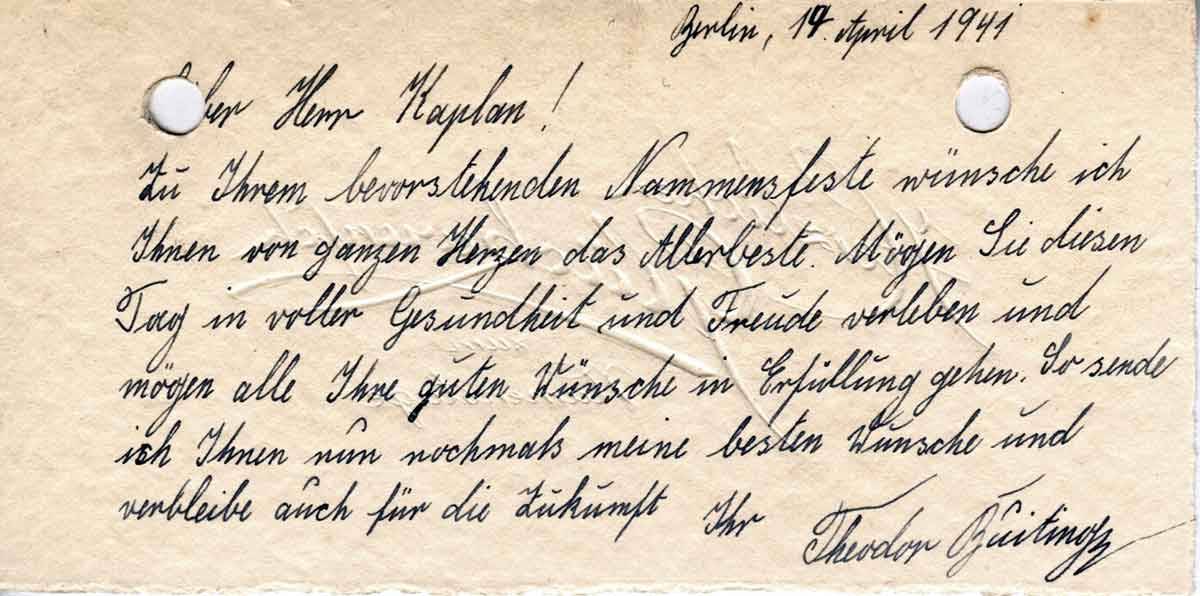 Berlin, 14. April 1941
ber Herr Kaplan!
Zu Ihrem bevorstehenden Nammensfeste wünsche ich
Ihnen von ganzen Herzen das Allerbeste. Mögen Sie diesen
Tag in voller Gesundheit und Freude verleben und
mögen alle Ihre guten Wünsche in Erfüllung gehen. So sende
ich Ihnen nun nochmals meine besten Wünsche und
verbleibe auch für die Zukunft Ihr Theodor